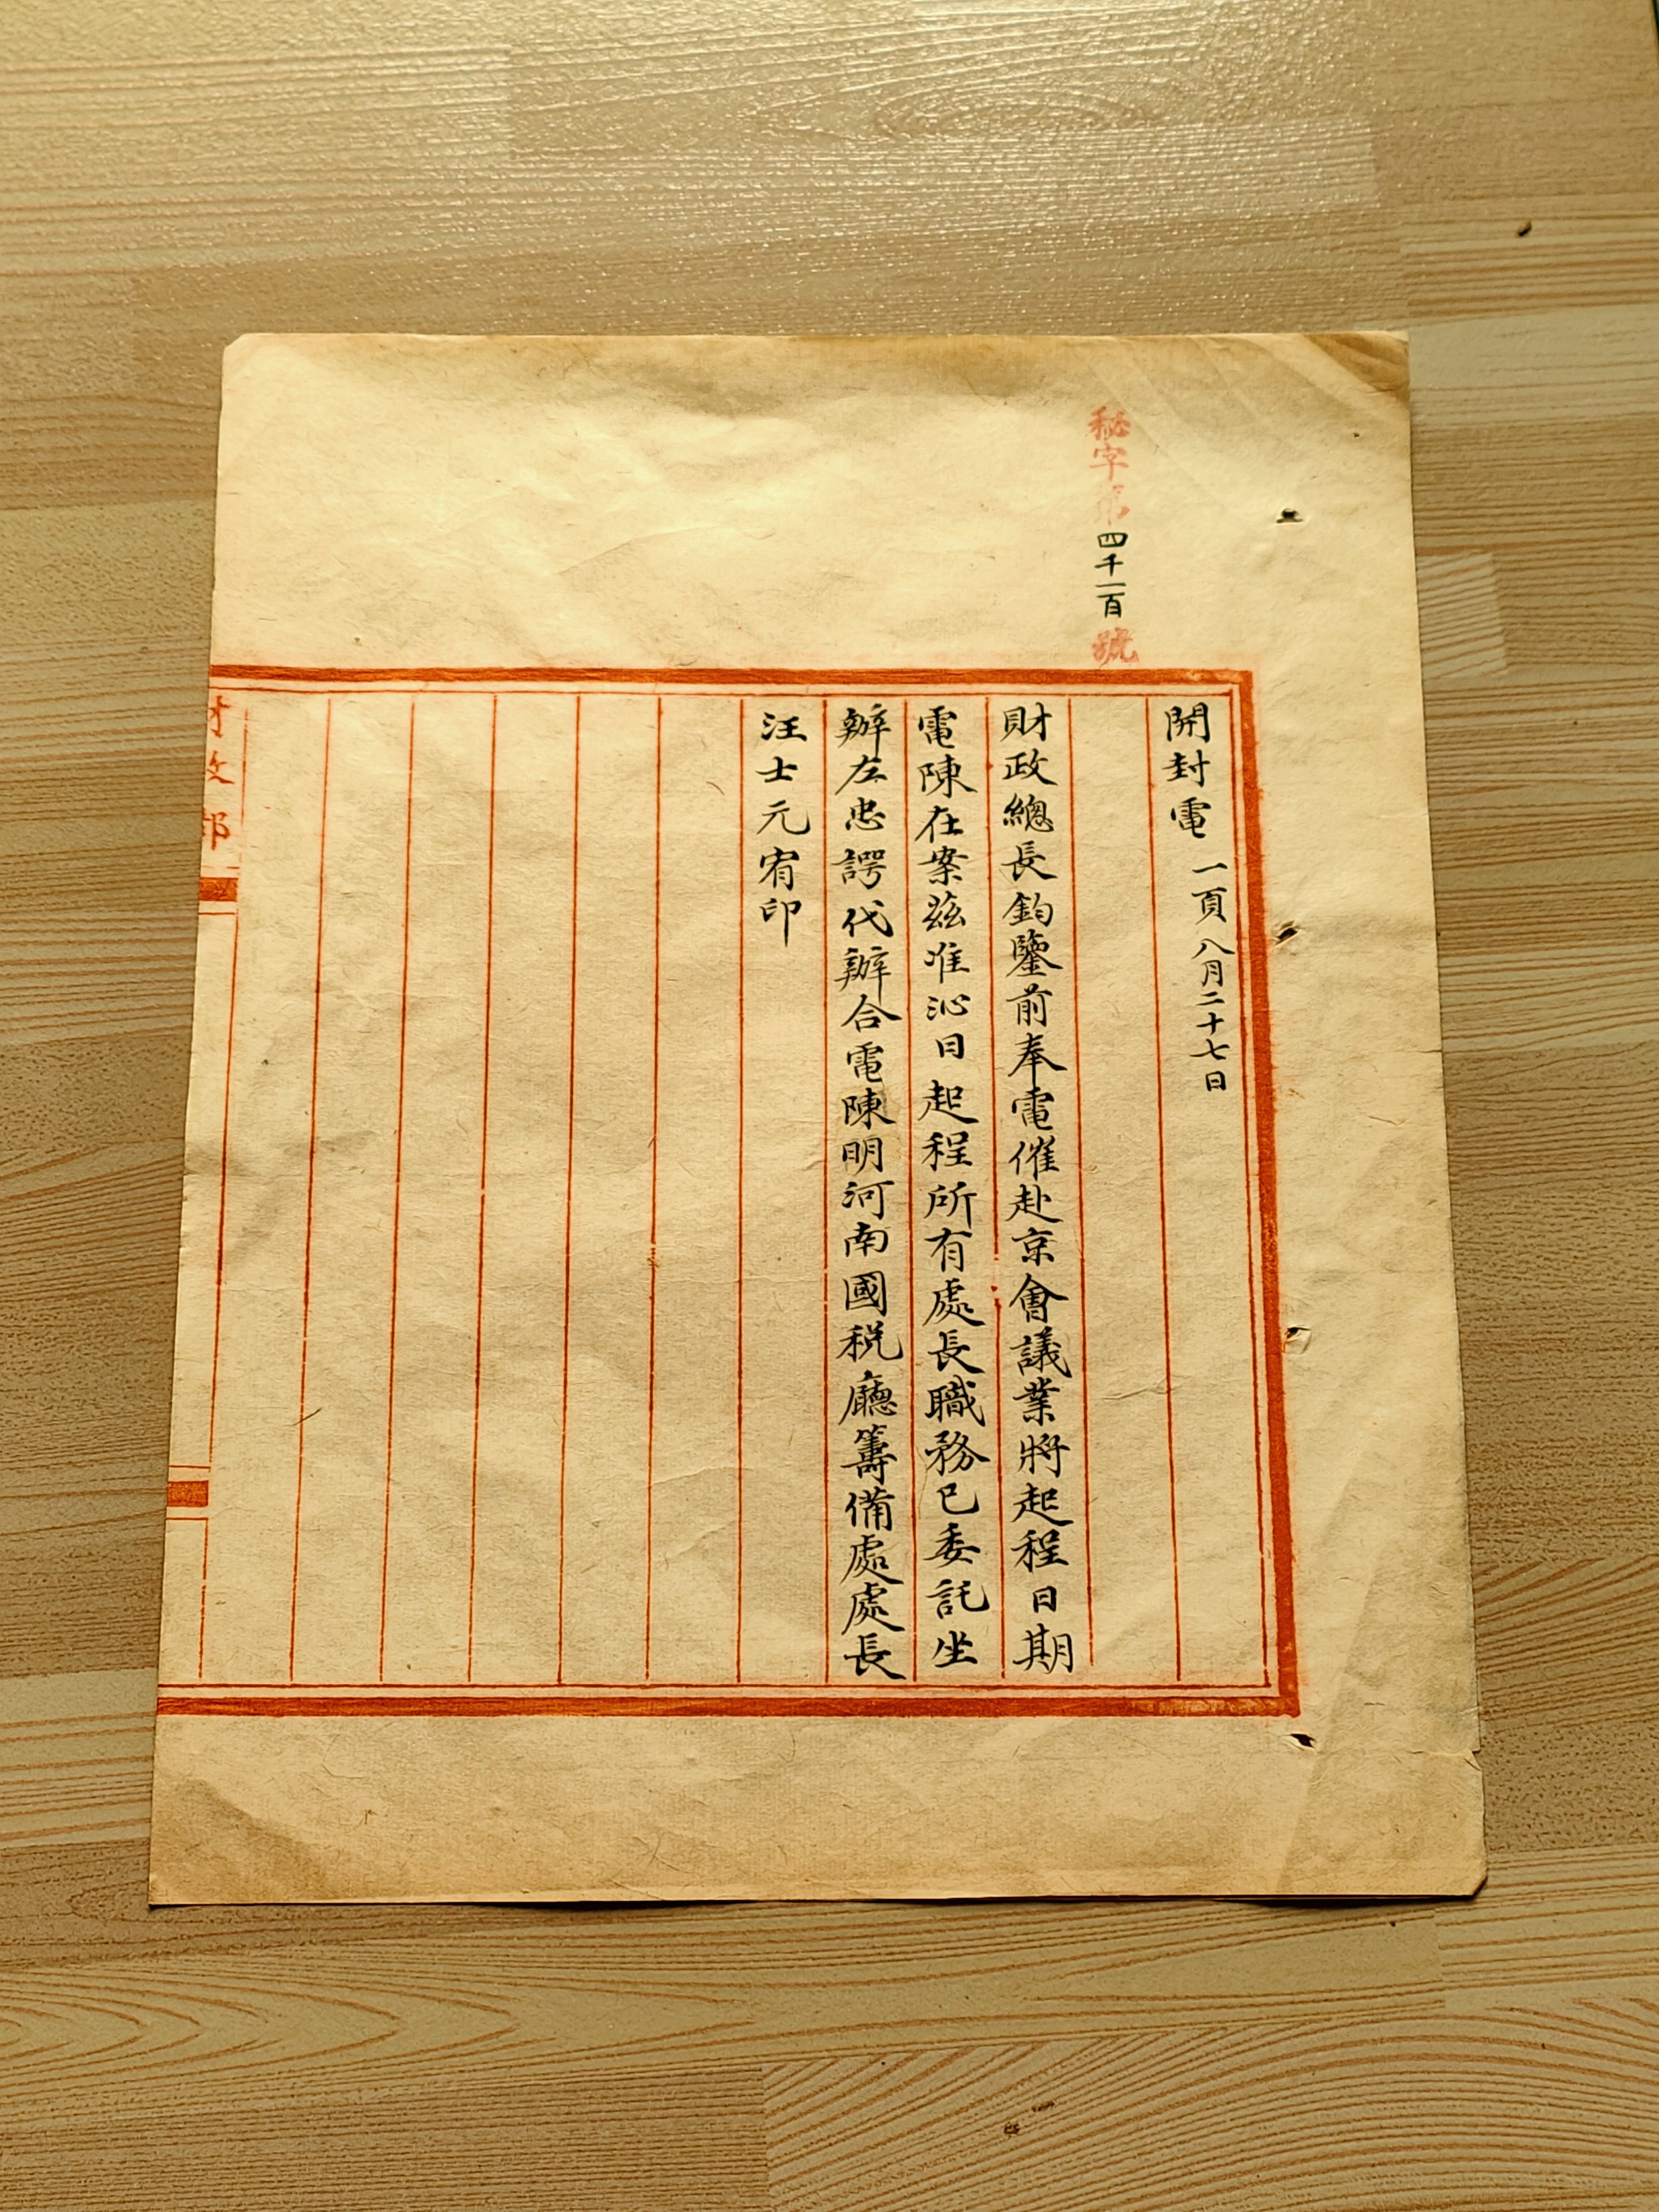 秘字第四千一百號
開封電 一頁 八月二十七日
財政總長鈞鑒前奉電催赴京會議業將起程日期
電陳在案茲准沁日起程所有處長職務已委託坐
辦左忠諤代辦合電陳明河南國税廳籌備處處長
汪士元宥印
財政部